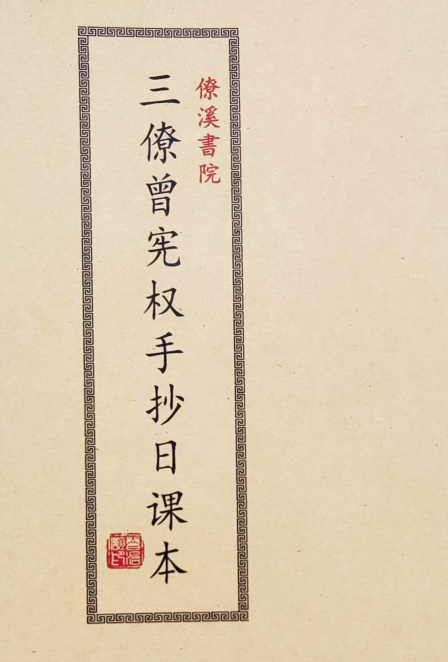 僚溪書院
三僚曾宪权手抄日课本